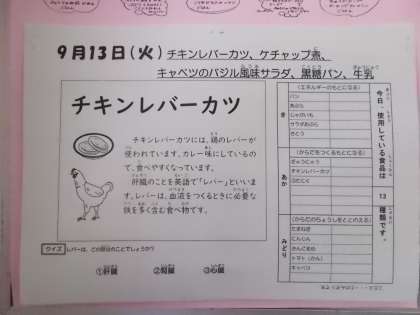 9月13日(火) チキンレバーカツ、ケチャップ煮、
キャベツのバジル風味サラダ、黒糖パン、牛乳
チキンレバーカツ
チキンレバーカツには、鶏のレバーが
使われています。カレー味にしているの
で、食べやすくなっています。
肝臓のことを英語で「レバー」といいま
す。レバーは、血液をつくるときに必要な
鉄を多く含む食べ物です。
クイズ レバーは、どの部位のことでしょうか？
①肝臓 ②腎臓 ③心臓
今日、使用している食品は 13 種類です。
き
(エネルギーのもとになる)
パン
あぶら
じゃがいも
サラダあぶら
さとう
あか
(からだをつくるもとになる)
ぎゅうにゅう
チキンレバーカツ
みどり
(からだのちょうしをととのえる)
たまねぎ
にんじん
トマト(かん)
キャベツ